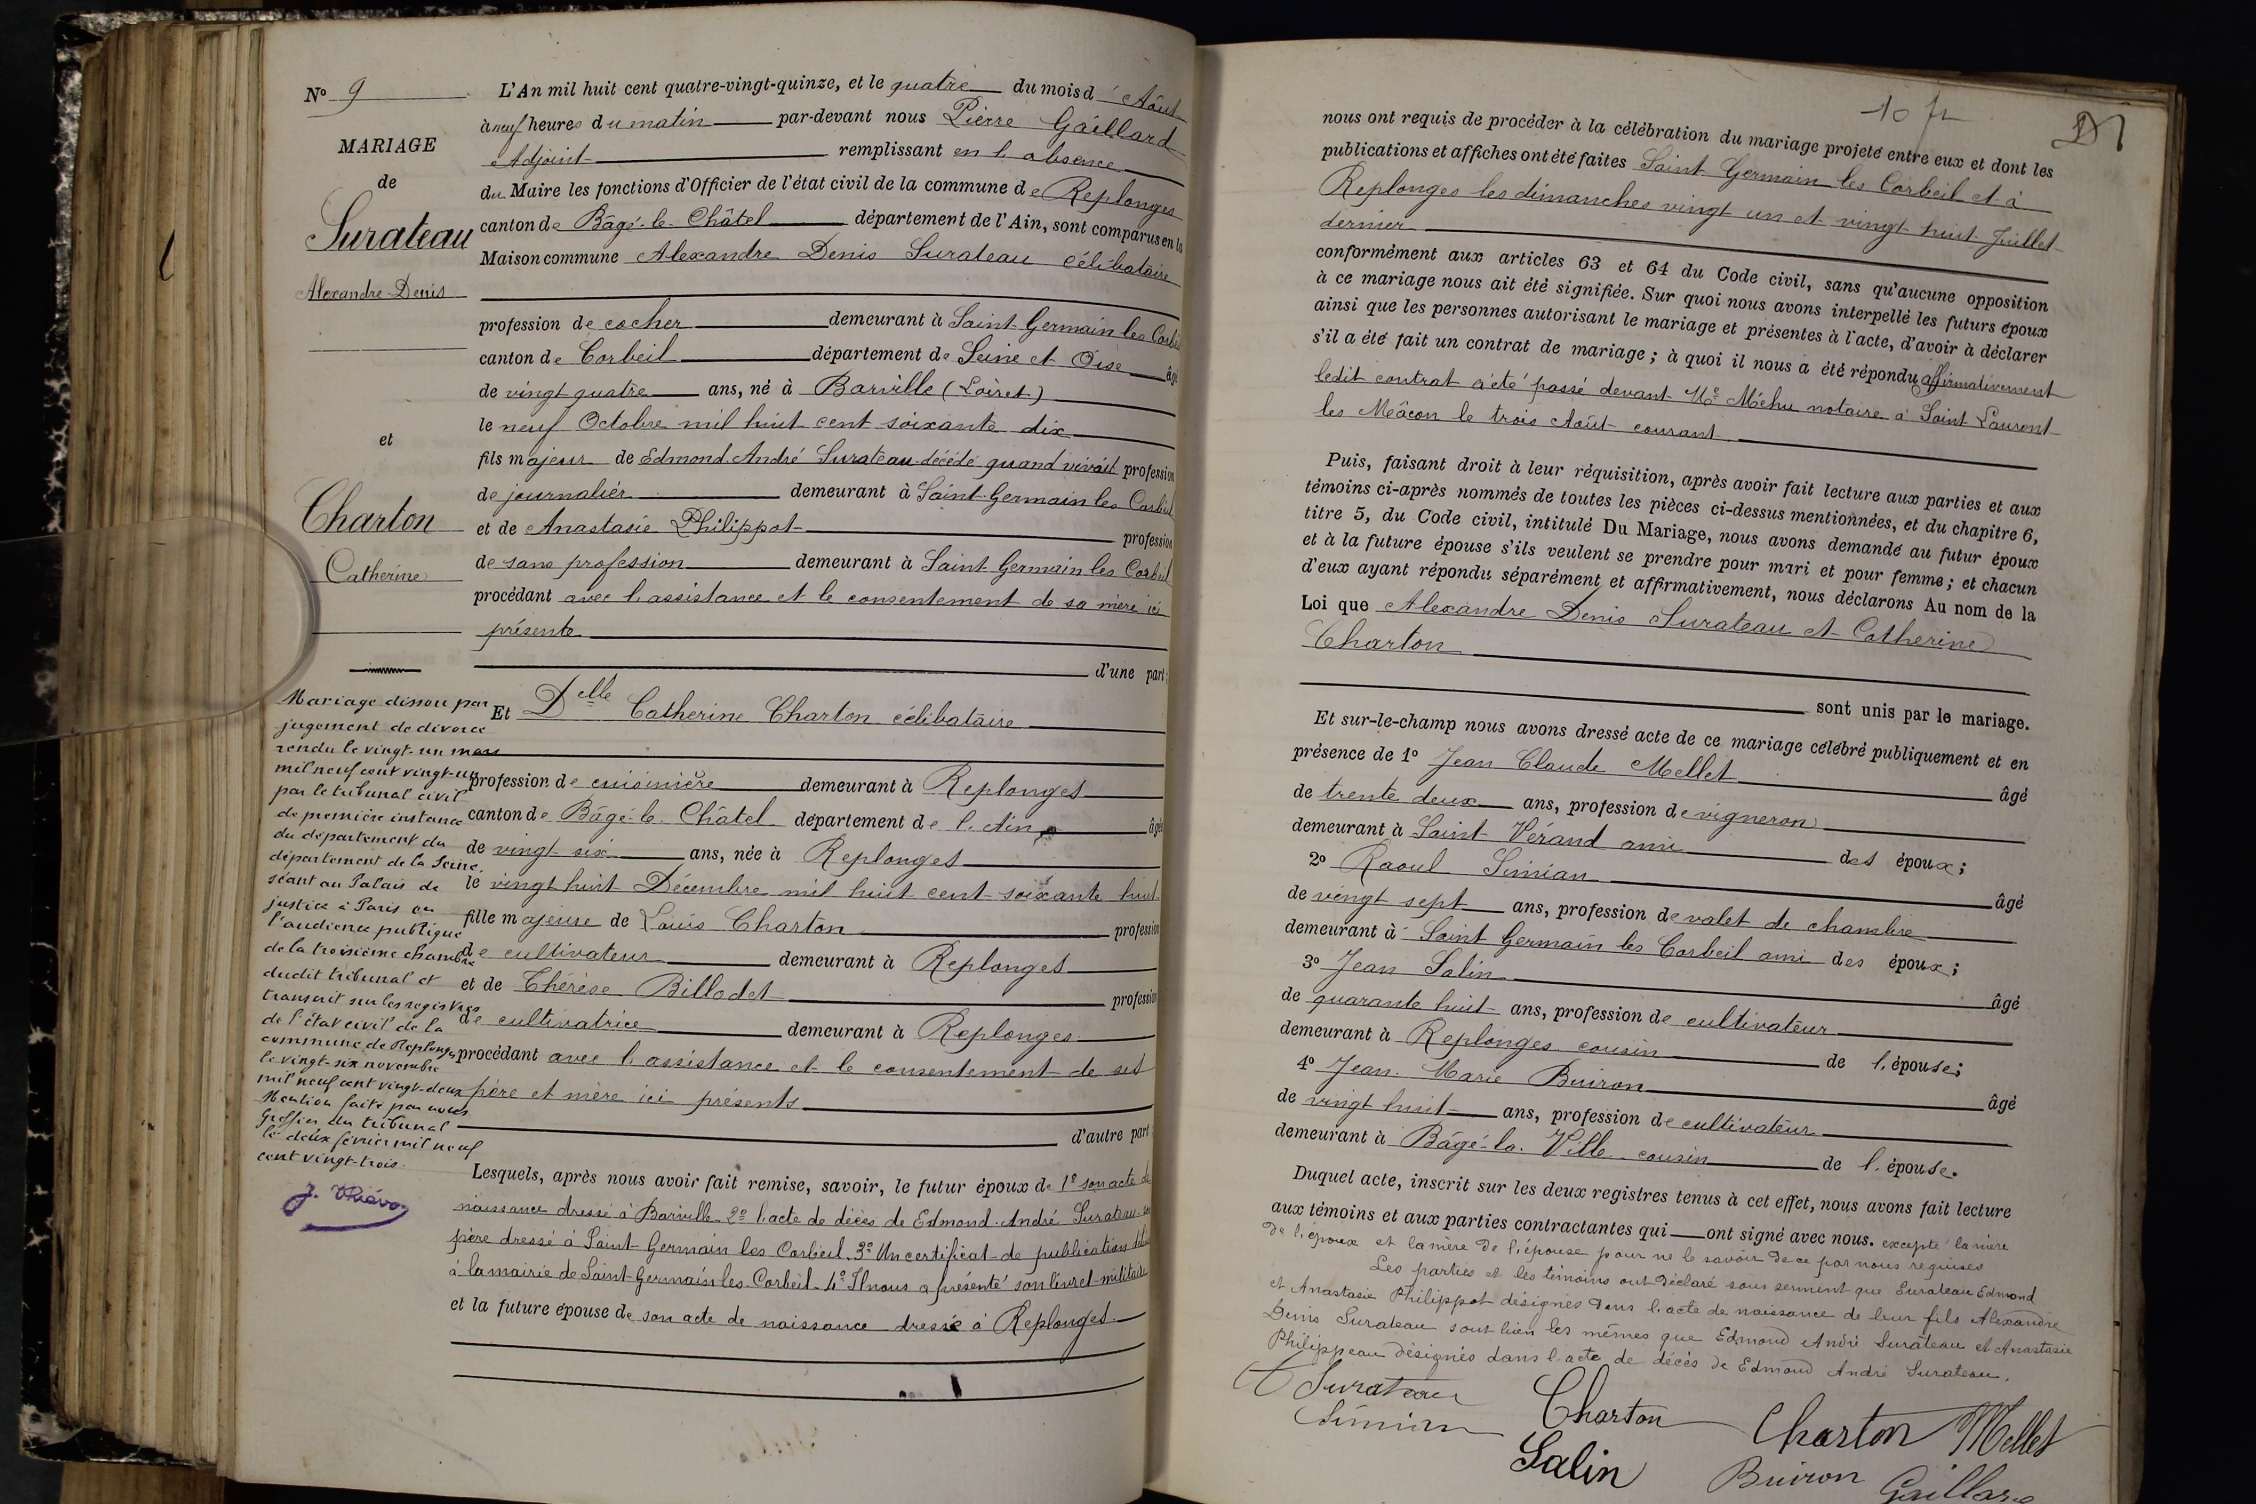 Nº 9
MARIAGE
de
Surateau
Alexandre-Denis
et
Charton
Catherine
Mariage dissou par
jugement de divorce
rendu le vingt-un mars
mil neuf cent vingt-un
par le tribunal civil
de première instance
du département du
département de la Seine,
séant au Palais de
justice à Paris en
l'audience publique
de la troisième chambre
dudit tribunal et
transcrit sur les registres
de l'état civil de la
commune de Replonges
le vingt-six novembre
mil neuf cent vingt-deux
Mention faite par nous
Greffier du tribunal
le deux février mil neuf
cent vingt-trois.
L'An mil huit cent quatre-vingt-quinze, et le quatre du mois d'Août
à neuf heures du matin par-devant nous Pierre Gaillard
Adjoint remplissant en l'absence
du Maire les fonctions d'Officier de l'état civil de la commune de Replonges
canton de Bâgé-le-Châtel département de l'Ain, sont comparus en la
Maison commune Alexandre Denis Surateau célibataire
profession de cocher demeurant à Saint-Germain les Corbeil
canton de Corbeil département de Seine et Oise âgé
de vingt quatre ans, né à Barville (Loiret)
le neuf Octobre mil huit cent soixante dix
fils majeur de Edmond André Surateau décédé quand vivait profession
de journalier demeurant à Saint-Germain les Corbeil
et de Anastasie Philippot profession
de sans profession demeurant à Saint-Germain les Corbeil
procédant avec l'assistance et le consentement de sa mère ici
présente
d'une part;
Et Delle Catherine Charton célibataire
profession de cuisinière demeurant à Replonges
canton de Bâgé-le-Châtel département de l'Ain âgée
de vingt six ans, née à Replonges
le vingt huit Décembre mil huit cent soixante huit
fille majeure de Louis Charton profession
de cultivateur demeurant à Replonges
et de Thérèse Billodet profession
de cultivatrice demeurant à Replonges
procédant avec l'assistance et le consentement de ses
père et mère ici présents
d'autre part
Lesquels, après nous avoir fait remise, savoir, le futur époux de 1º son acte de
naissance dressé à Barville 2º l'acte de décès de Edmond André Surateau son
père dressé à Saint-Germain les Corbeil 3º Un certificat de publications
à la mairie de Saint-Germain les Corbeil 4º Il nous a présenté son livret militaire
et la future épouse de son acte de naissance dressé à Replonges
10 fr
nous ont requis de procéder à la célébration du mariage projeté entre eux et dont les
publications et affiches ont été faites Saint Germain les Corbeil et à
Replonges les dimanches vingt un et vingt huit Juillet
dernier
conformément aux articles 63 et 64 du Code civil, sans qu'aucune opposition
à ce mariage nous ait été signifiée. Sur quoi nous avons interpellé les futurs époux
ainsi que les personnes autorisant le mariage et présentes à l'acte, d'avoir à déclarer
s'il a été fait un contrat de mariage; à quoi il nous a été répondu affirmativement
ledit contrat a été passé devant Me Méhu notaire à Saint Laurent
les Mâcon le trois Août courant
Puis, faisant droit à leur réquisition, après avoir fait lecture aux parties et aux
témoins ci-après nommés de toutes les pièces ci-dessus mentionnées, et du chapitre 6,
titre 5, du Code civil, intitulé Du Mariage, nous avons demandé au futur époux
et à la future épouse s'ils veulent se prendre pour mari et pour femme; et chacun
d'eux ayant répondu séparément et affirmativement, nous déclarons Au nom de la
Loi que Alexandre Denis Surateau et Catherine
Charton
sont unis par le mariage.
Et sur-le-champ nous avons dressé acte de ce mariage célébré publiquement et en
présence de 1º Jean Claude Mellet âgé
de trente deux ans, profession de vigneron
demeurant à Saint Vérand ami des époux;
2º Raoul Simian âgé
de vingt sept ans, profession de valet de chambre
demeurant à Saint Germain les Corbeil ami des époux;
3º Jean Salin âgé
de quarante huit ans, profession de cultivateur
demeurant à Replonges cousin de l'épouse;
4º Jean Marie Buiron âgé
de vingt huit ans, profession de cultivateur
demeurant à Bâgé-la-Ville cousin de l'épouse.
Duquel acte, inscrit sur les deux registres tenus à cet effet, nous avons fait lecture
aux témoins et aux parties contractantes qui ont signé avec nous. excepté la mère
de l'époux et la mère de l'épouse pour ne le savoir de ce par nous requises
Les parties et les témoins ont déclaré sous serment que Surateau Edmond
et Anastasie Philippot désignés dans l'acte de naissance de leur fils Alexandre
Denis Surateau sont bien les mêmes que Edmond André Surateau et Anastasie
Philippeau désignés dans l'acte de décès de Edmond André Surateau.
A Surateau
Charton
Charton
Mellet
Simian
Salin
Buiron
Gaillard